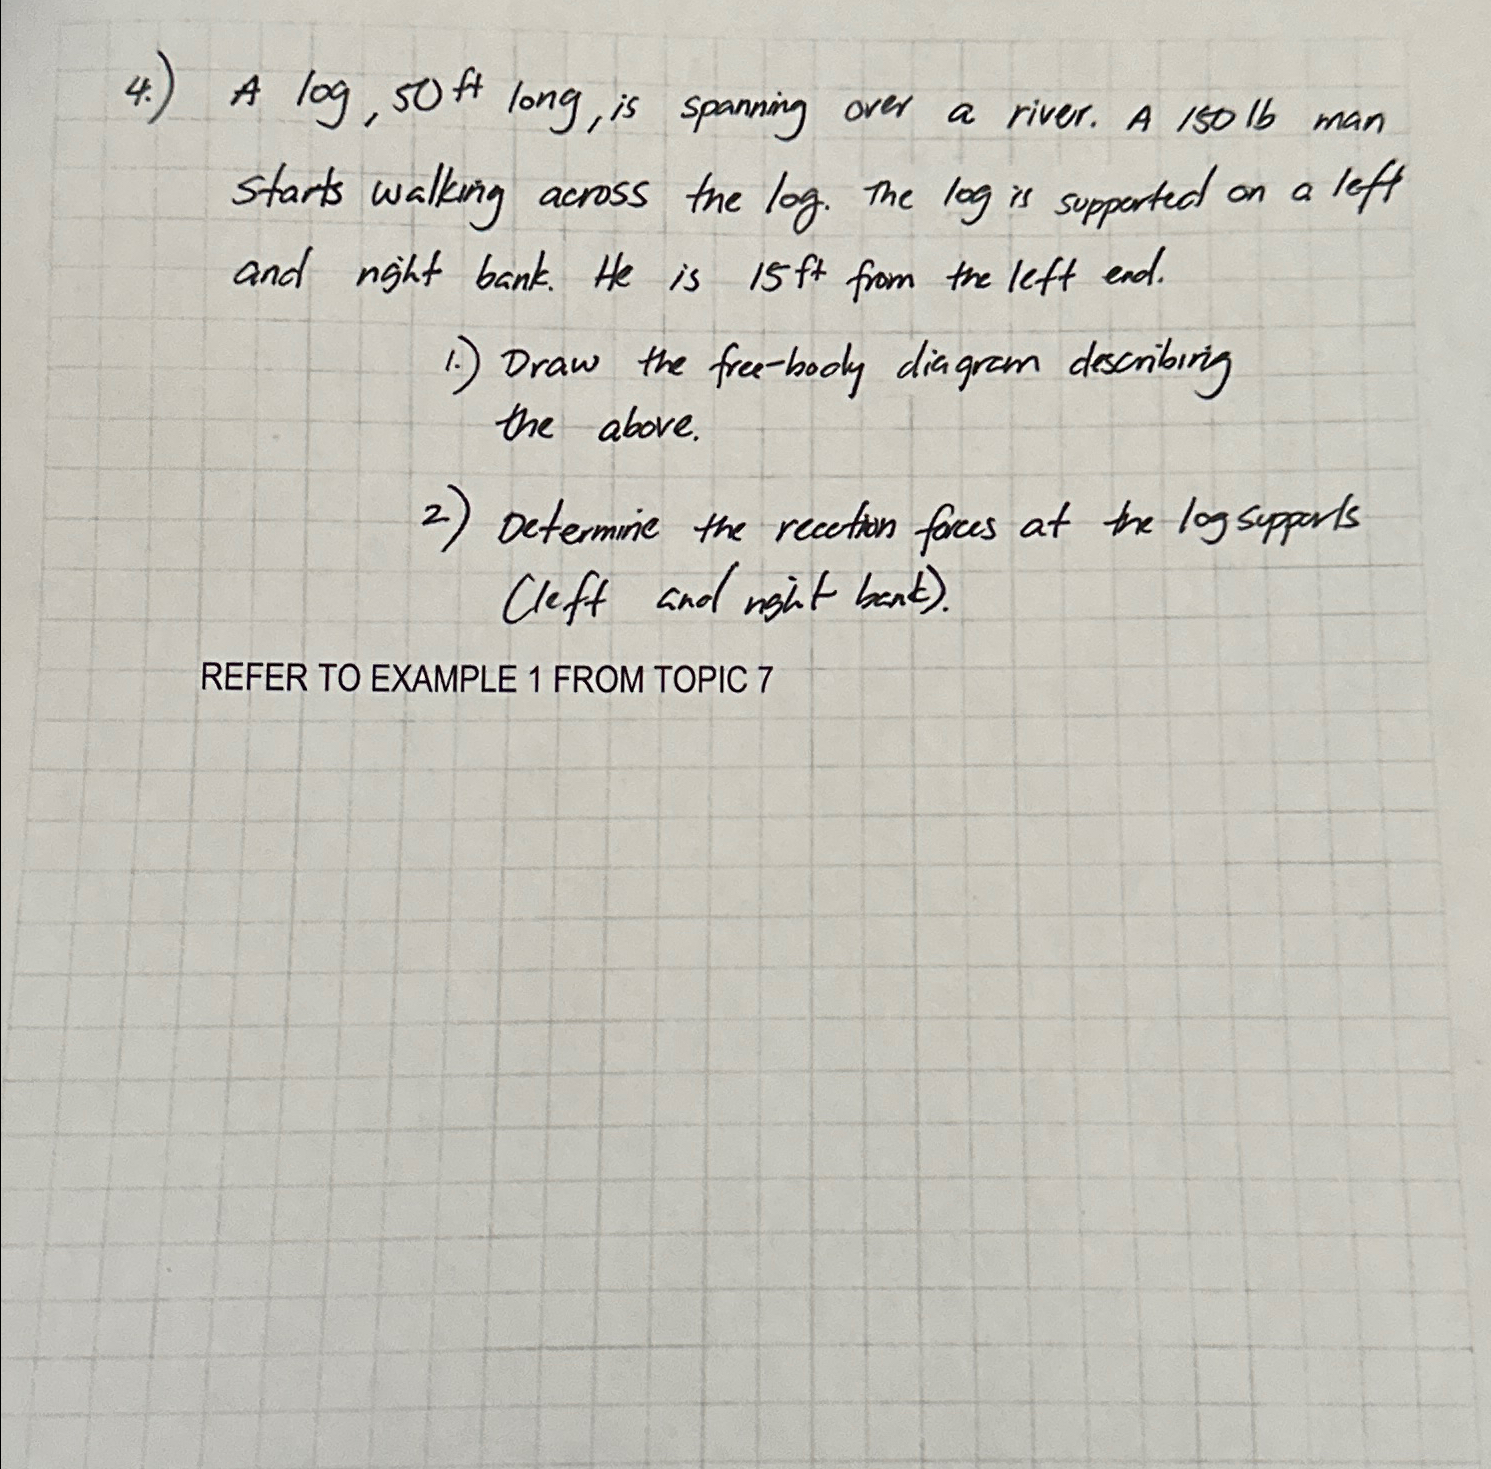 4.) A log, 50 ft long, is spanning over a river. A 150 lb man
starts walking across the log. The log is supported on a left
and right bank. He is 15 ft from the left end.
1.) Draw the free-body diagram describing
the above.
2) Determine the recetion forces at the log supports
(left and right bank).
REFER TO EXAMPLE 1 FROM TOPIC 7